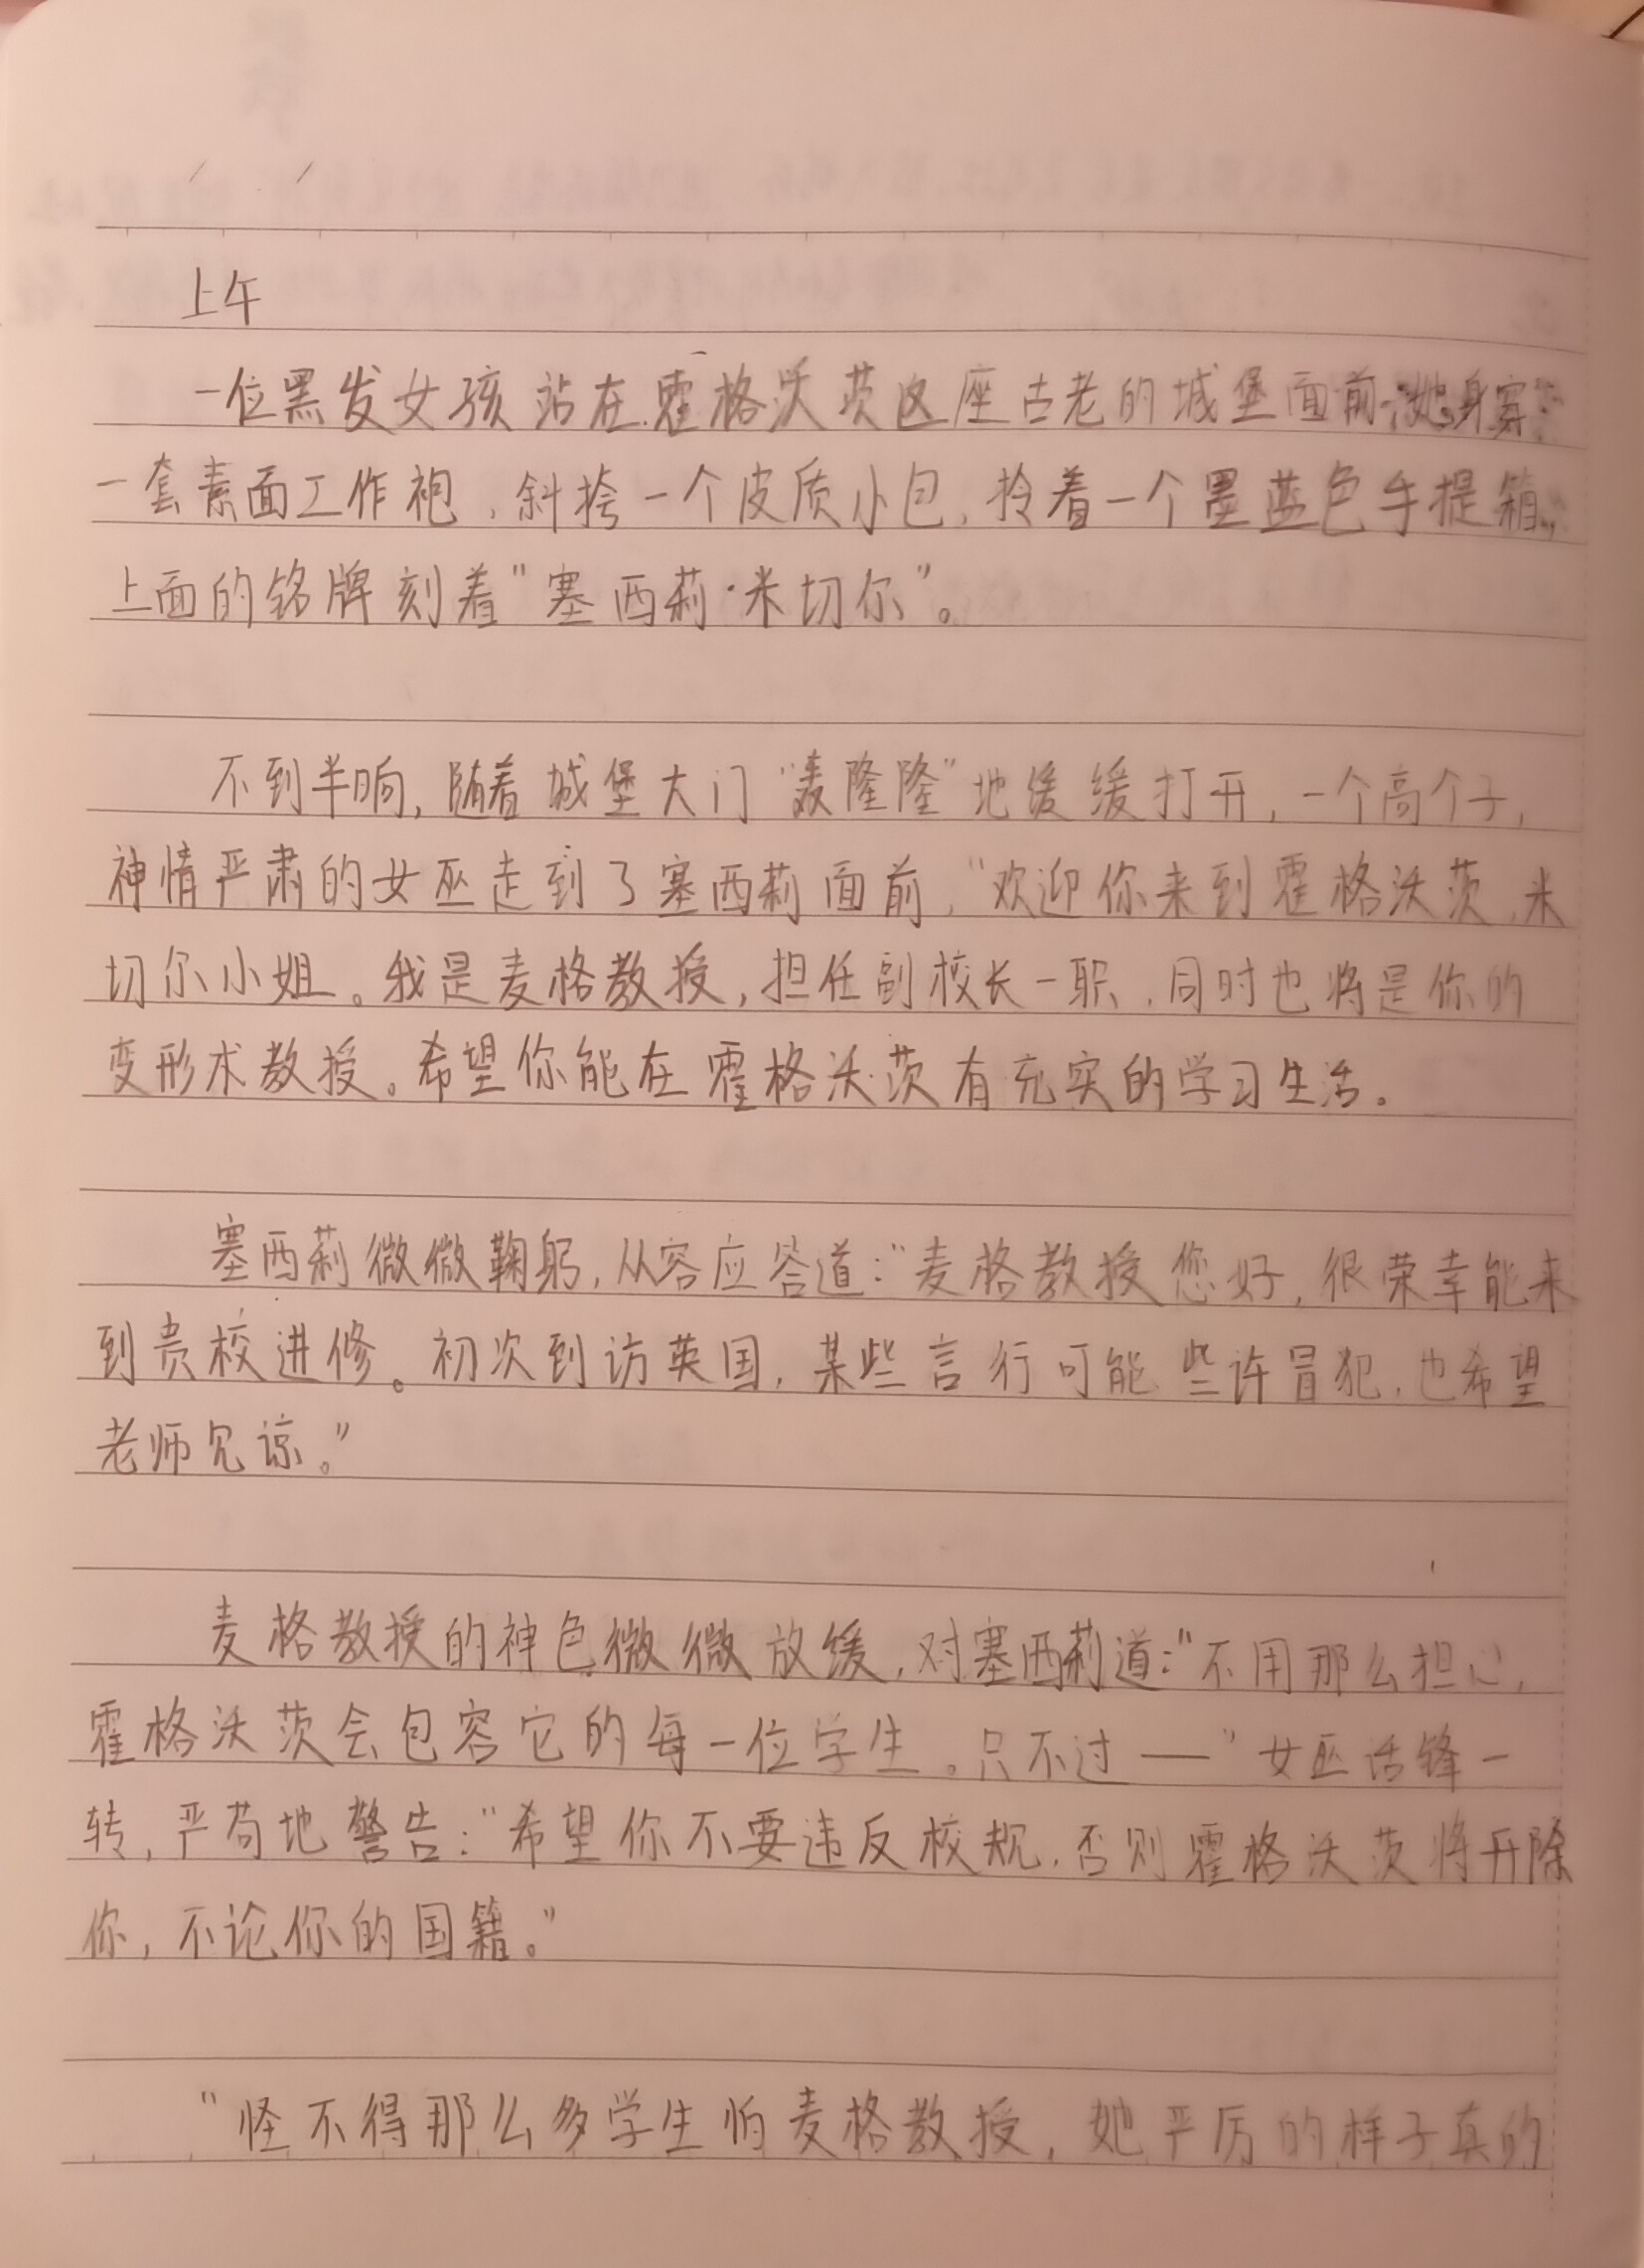 上午
一位黑发女孩站在霍格沃茨这座古老的城堡面前，她身穿
一套素面工作袍，斜挎一个皮质小包，拎着一个墨蓝色手提箱，
上面的铭牌刻着"塞西莉·米切尔"。
不到半晌，随着城堡大门"轰隆隆"地缓缓打开，一个高个子，
神情严肃的女巫走到了塞西莉面前，"欢迎你来到霍格沃茨，米
切尔小姐。我是麦格教授，担任副校长一职，同时也将是你的
变形术教授。希望你能在霍格沃茨有充实的学习生活。
塞西莉微微鞠躬，从容应答道："麦格教授您好，很荣幸能来
到贵校进修。初次到访英国，某些言行可能些许冒犯，也希望
老师见谅。"
麦格教授的神色微微放缓，对塞西莉道："不用那么担心，
霍格沃茨会包容它的每一位学生。只不过——"女巫话锋一
转，严苟地警告："希望你不要违反校规，否则霍格沃茨将开除
你，不论你的国籍。"
"怪不得那么多学生怕麦格教授，她严厉的样子真的